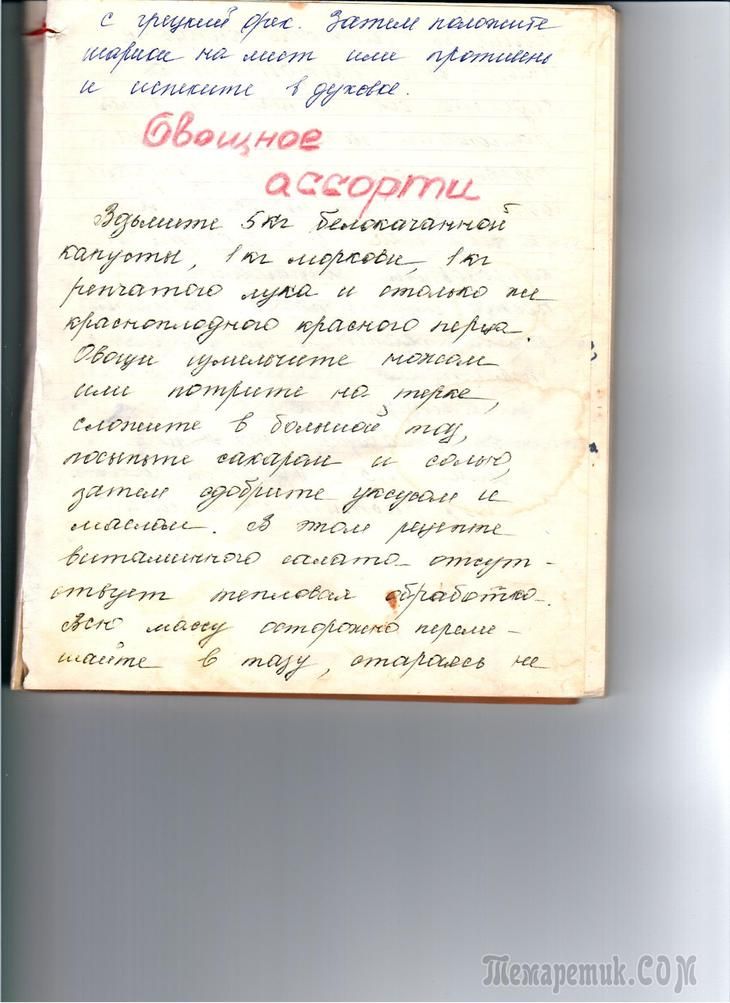 с грецкий орех. Затем положите
шарики на лист или противень
и испеките в духовке.
Овощное
ассорти
Возьмите 5 кг белокачанной
капусты, 1 кг моркови, 1 кг
репчатого лука и столько же
красноплодного красного перца.
Овощи измельчите ножом
или потрите на терке,
сложите в большой таз,
посыпьте сахаром и солью,
затем сдобрите уксусом и
маслом. В этом рецепте
витаминного салата отсут-
ствует тепловая обработка.
Всю массу осторожно переме-
шайте в тазу, стараясь не
Темаретик.COM